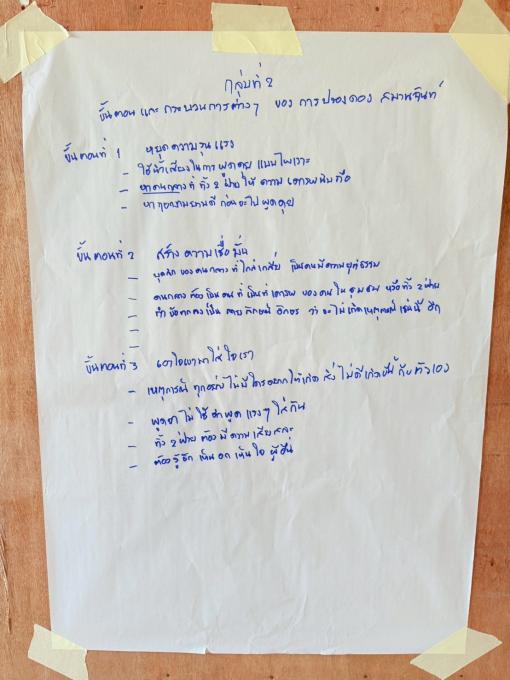 กลุ่มที่ 2
ขั้นตอน และ กระบวนการต่างๆ ของ การปรองดอง สมานฉันท์
ขั้นตอนที่ 1 หยุดความรุนแรง
- ใช้น้ำเสียงในการ พูดคุย แบบไพเราะ
- หาคนกลาง ที่ ทั้ง 2 ฝ่าย ให้ ความ เคารพนับถือ
- หา ก่อนจะไป พูดคุย
ขั้นตอนที่ 2 สร้าง ความเชื่อมั่น
- บุคลิก ของ คนกลาง ที่ ไกล่เกลี่ย เป็นคนมีความยุติธรรม
- คนกลาง ต้อง เป็น คน ที่ เป็นที่ เคารพ ของ คน ใน ชุมชน หรือทั้ง 2 ฝ่าย
- ทำ ข้อตกลง เป็น ลายลักษณ์ อักษร ว่า จะ ไม่เกิดเหตุการณ์ เช่นนี้ อีก
-
-
ขั้นตอนที่ 3 เอาใจเขามาใส่ใจเรา
- เหตุการณ์ ทุกอย่าง ไม่มี ใครอยากให้เกิด สิ่ง ไม่ดี เกิดขึ้น กับ ตัวเอง
- พูดจา ไม่ ใช้ คำ พูด แรงๆ ใส่กัน
- ทั้ง 2 ฝ่าย ต้อง มี ความ เสียสละ
- ต้อง รู้จัก เห็น อก เห็น ใจ ผู้อื่น